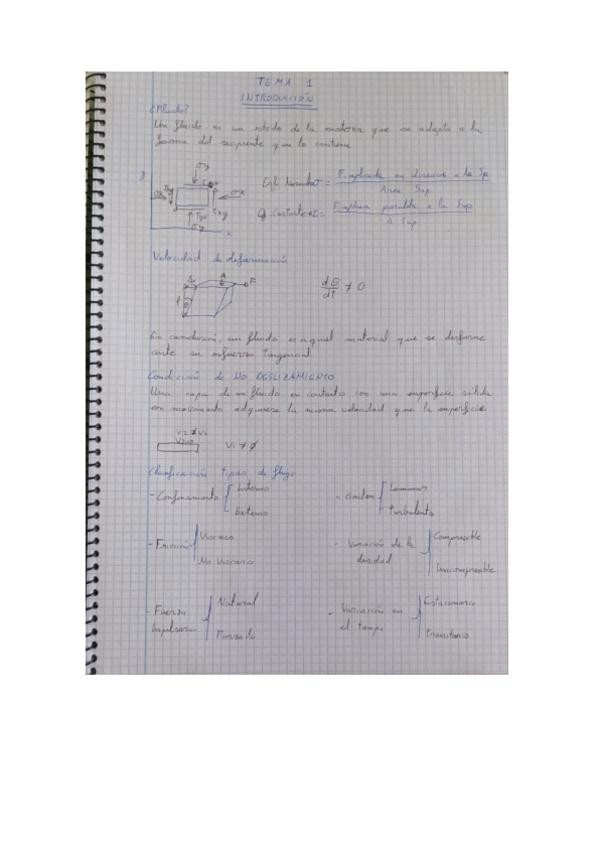 TEMA 1
INTRODUCCIÓN
¿Fluido?
Un fluido es un estado de la materia que se adapta a la
forma del recipiente que la contiene
y
σy
τxy
σx
τyx
σy
x
Esf. Normal σ = F. aplicada en direccion a la Sp
Area Sup
Esf. Cortante τ = F aplica paralela a la Sup
A Sup
Velocidad de deformación
A F
l θ
dθ/dt ≠ 0
En conclusión, un fluido es aquel material que se deforma
ante un esfuerzo tangencial
Condición de NO DESLIZAMIENTO
Una capa de un fluido en contacto con una superficie solida
en movimiento adquiere la misma velocidad que la superficie
V2 ≠ V1
V1 ≠ 0
Clasificación tipos de flujo
- Confinamiento Interno
Externo
- Laminar
Turbulento
- Fricción Viscoso
No viscoso
- Variación de la densidad Compresible
Incompresible
- Fuerza Impulsora Natural
Forzado
- Variación en el tiempo Estacionario
transitorio